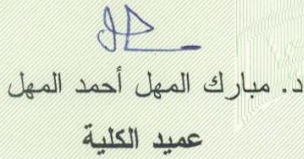 د. مبارك المهل أحمد المهل
عميد الكلية